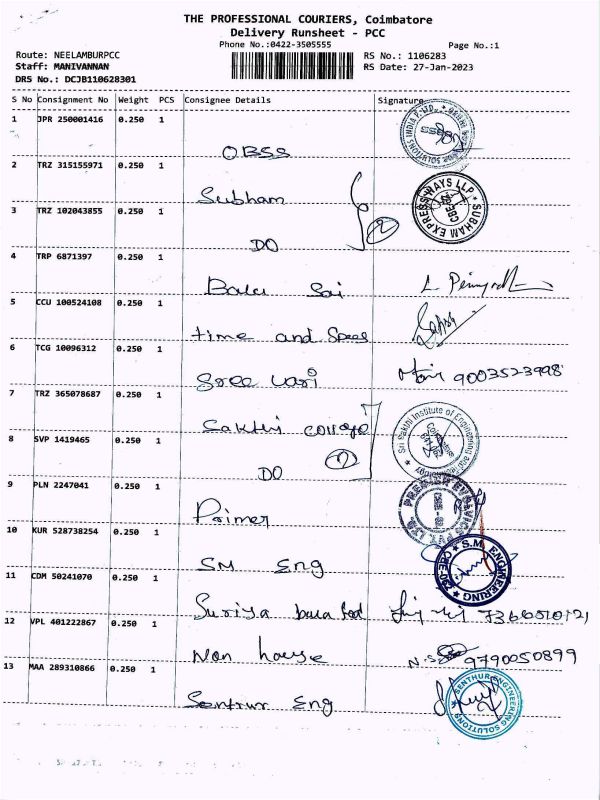 THE PROFESSIONAL COURIERS, Coimbatore
Delivery Runsheet - PCC
Phone No.:0422-3505555
Page No.:1
Route: NEELAMBURPCC
RS No.: 1106283
Staff: MANIVANNAN
RS Date: 27-Jan-2023
DRS No.: DCJB110628301
S No Consignment No Weight PCS Consignee Details Signature
1 JPR 250001416 0.250 1
OBSS
2 TRZ 315155971 0.250 1
Subham
SUBHAM EXPRESS WAYS LLP
3 TRZ 102043855 0.250 1
DO 2
4 TRP 6871397 0.250 1
Balu Sai
5 CCU 100524108 0.250 1
time and Spees
6 TCG 10096312 0.250 1
Sree vari 9003523998
7 TRZ 365078687 0.250 1
Sakthi college
Sri Sakthi Institute of Engineering and Technology
Coimbatore
8 SVP 1419465 0.250 1
DO 2
9 PLN 2247041 0.250 1
Primer
10 KUR 528738254 0.250 1
SM Eng
S.M. ENGINEERING
11 CDM 50241070 0.250 1
Suriya
12 VPL 401222867 0.250 1
Non house 9790050899
13 MAA 289310866 0.250 1
Senthur Eng
SENTHUR ENGINEERING SOLUTIONS